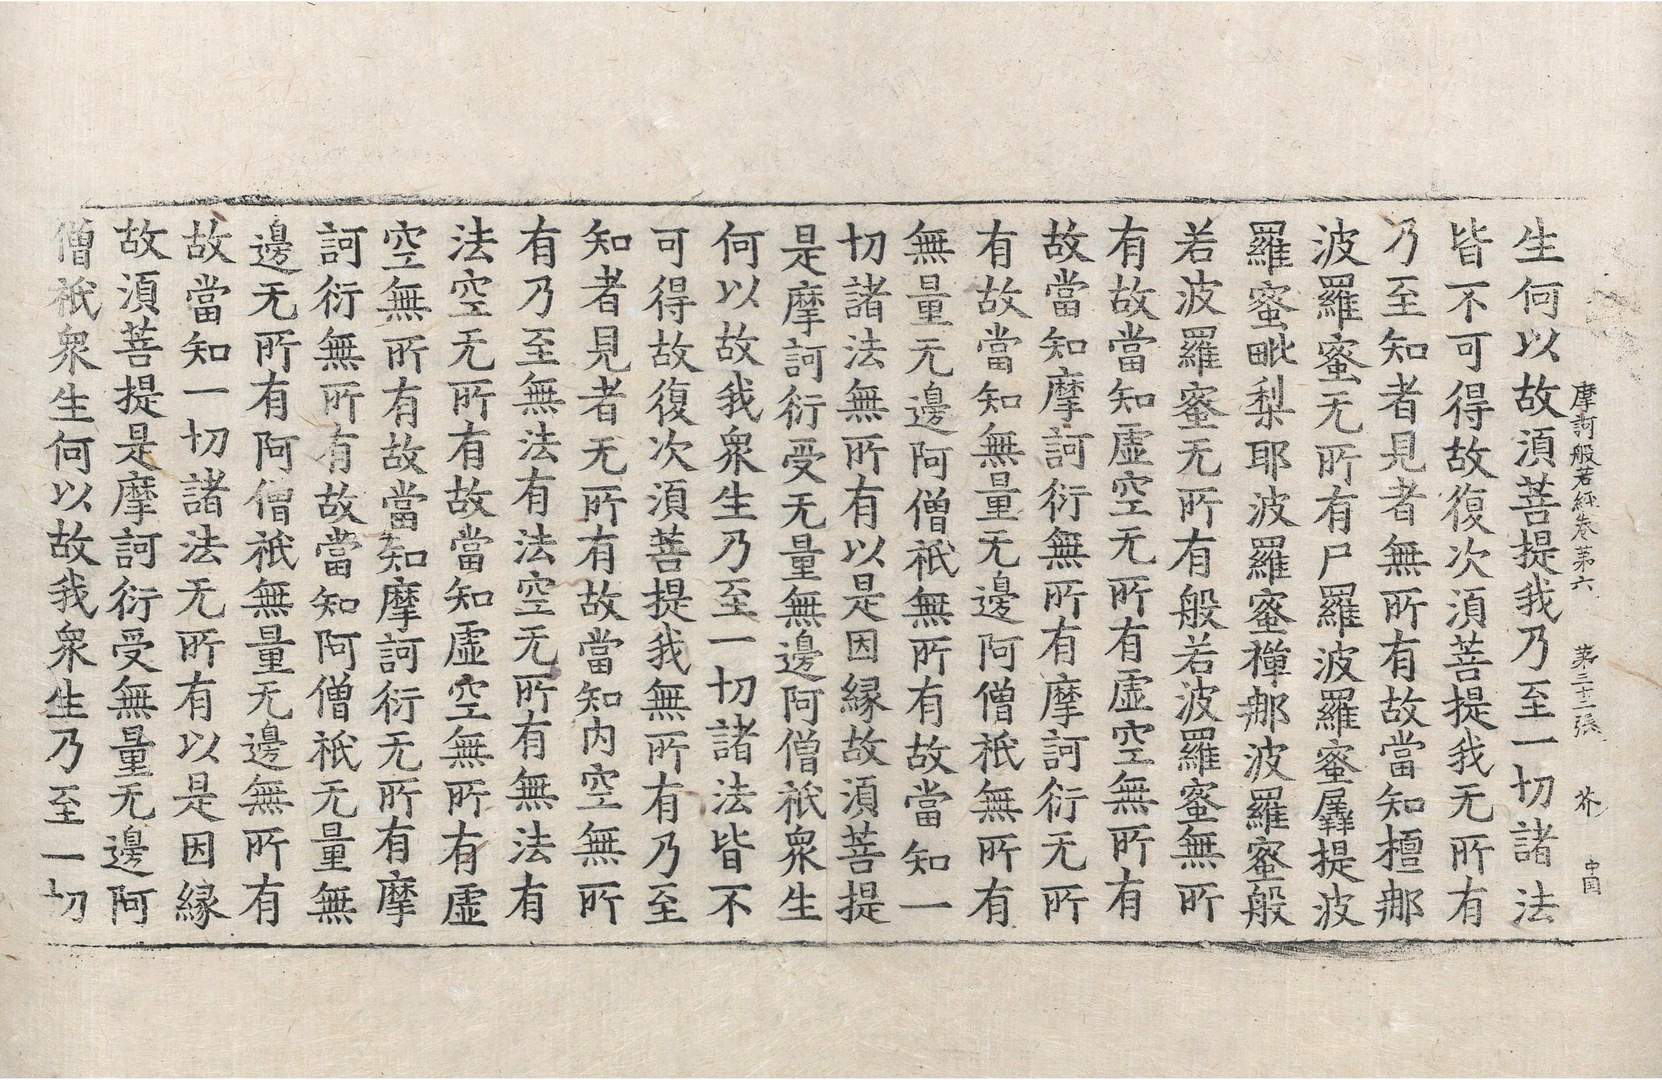 摩訶般若經卷第六 第三十二張 芥 中国
生何以故須菩提我乃至一切諸法
皆不可得故復次須菩提我无所有
乃至知者見者無所有故當知檀那
波羅蜜无所有尸羅波羅蜜羼提波
羅蜜毗梨耶波羅蜜禪那波羅蜜般
若波羅蜜无所有般若波羅蜜無所
有故當知虛空无所有虛空無所有
故當知摩訶衍無所有摩訶衍无所
有故當知無量无邊阿僧祇無所有
無量无邊阿僧祇無所有故當知一
切諸法無所有以是因縁故須菩提
是摩訶衍受无量無邊阿僧祇衆生
何以故我衆生乃至一切諸法皆不
可得故復次須菩提我無所有乃至
知者見者无所有故當知内空無所
有乃至無法有法空无所有無法有
法空无所有故當知虛空無所有虛
空無所有故當知摩訶衍无所有摩
訶衍無所有故當知阿僧祇无量無
邊无所有阿僧祇無量无邊無所有
故當知一切諸法无所有以是因縁
故須菩提是摩訶衍受無量无邊阿
僧祇衆生何以故我衆生乃至一切